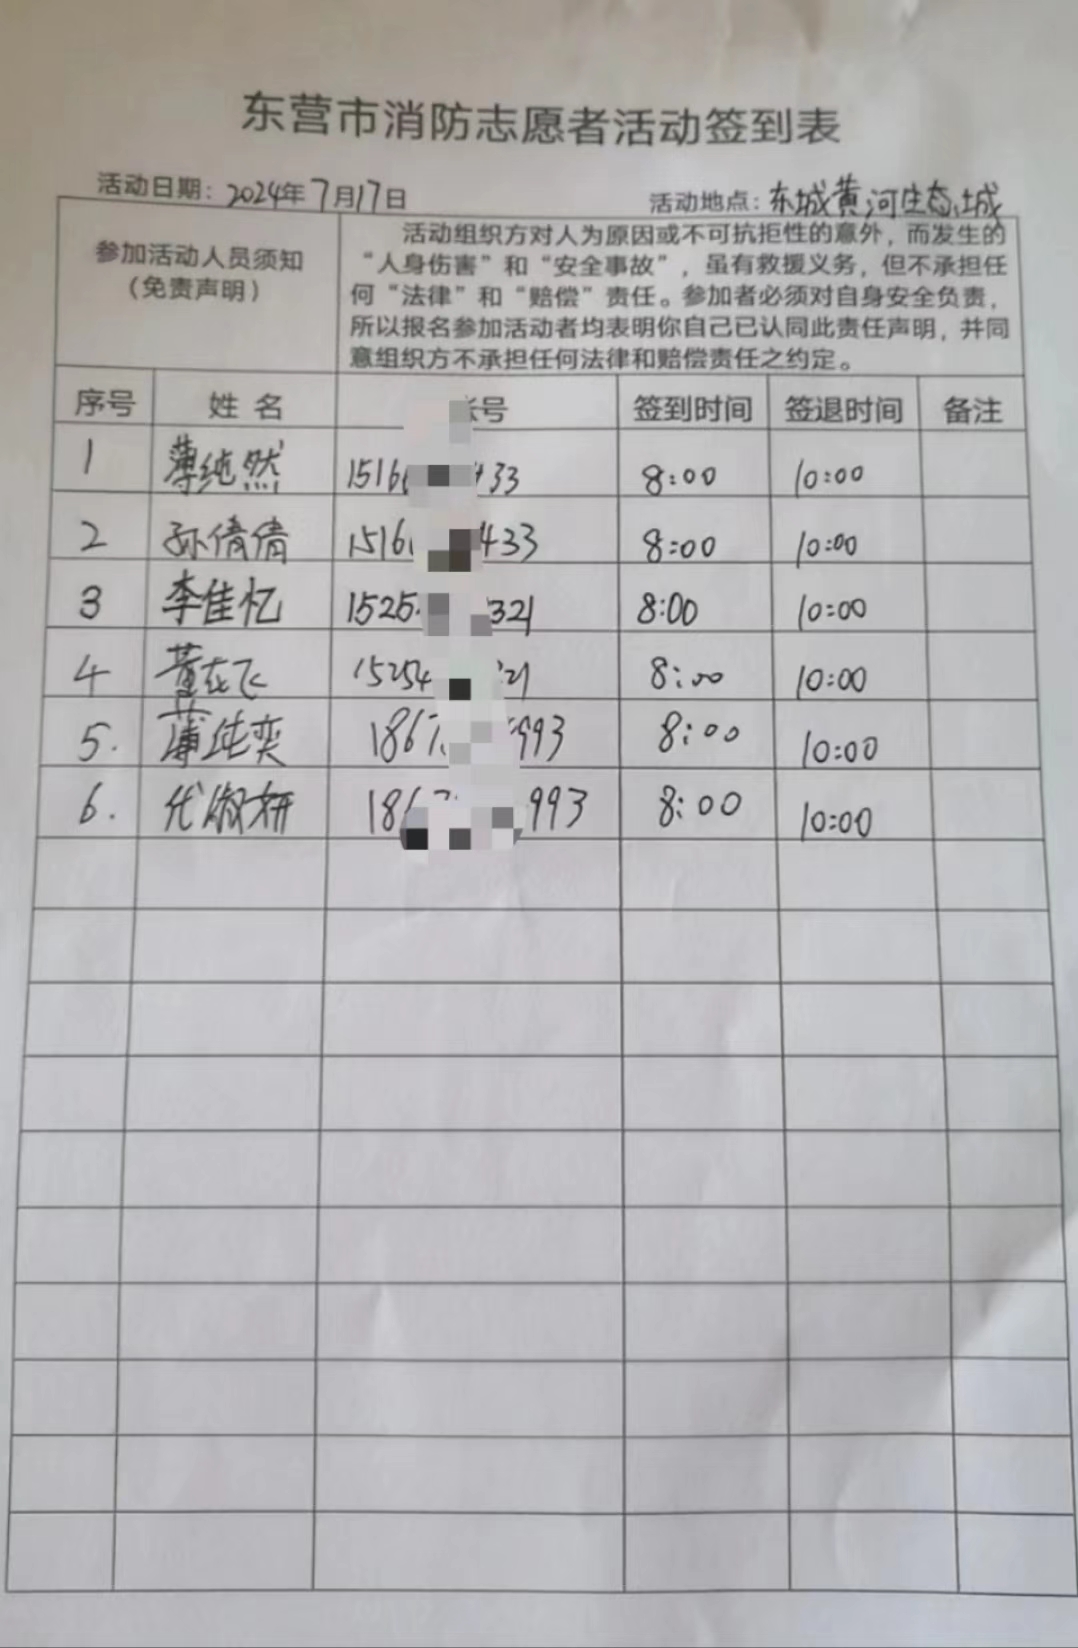 东营市消防志愿者活动签到表
活动日期：2024年7月17日 活动地点：东城黄河生态城
参加活动人员须知
（免责声明）
活动组织方对人为原因或不可抗拒性的意外，而发生的
“人身伤害”和“安全事故”，虽有救援义务，但不承担任
何“法律”和“赔偿”责任。参加者必须对自身安全负责，
所以报名参加活动者均表明你自己已认同此责任声明，并同
意组织方不承担任何法律和赔偿责任之约定。
序号 姓名 号 签到时间 签退时间 备注
1 薄纯然 1516 33 8:00 10:00
2 孙倩倩 1516 433 8:00 10:00
3 李佳忆 1525 321 8:00 10:00
4 董 飞 15254 21 8:00 10:00
5. 薄纯奕 1867 993 8:00 10:00
6. 代淑妍 186 993 8:00 10:00